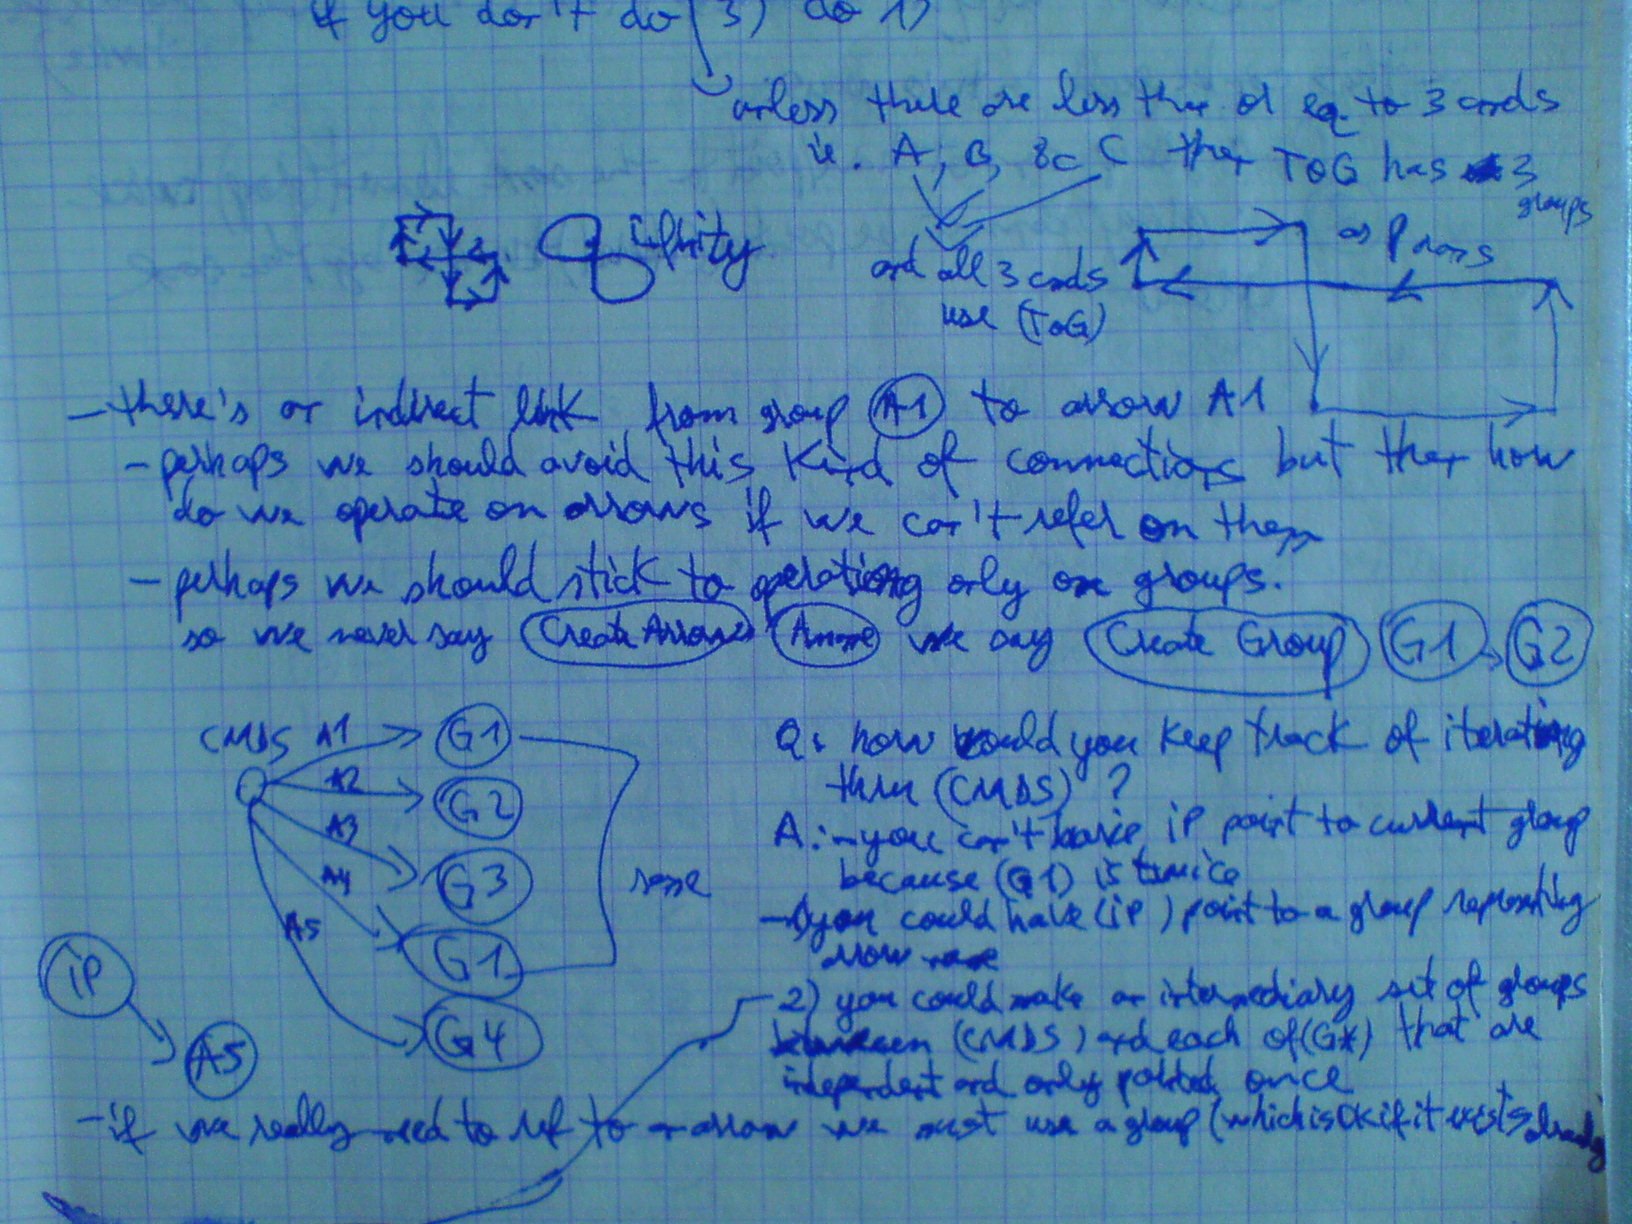 if you don't do 3) do 1)
unless there are less than or eq. to 3 conds
ie. A, B, &c C then ToG has 3
groups
infinity
as params
and all 3 conds
use (ToG)
- there's an indirect link from group (A1) to arrow A1
- perhaps we should avoid this kind of connections but then how
do we operate on arrows if we can't refer on them
- perhaps we should stick to operating only on groups.
so we never say (Create Arrow) (Aname) we say (Create Group) (G1) → (G2)
CMDS A1 G1
A2 G2
A3 G3
A4 G1
A5 G4
same
iP
A5
Q: how would you keep track of iterating
thru (CMDS) ?
A: - you can't have iP point to current group
because (G1) is twice
- 1) you could have (iP) point to a group representing
arrow
- 2) you could make an intermediary set of groups
between (CMDS) and each of (G*) that are
independent and only pointed once
- if we really need to ref to an arrow we must use a group (which is OK if it exists already)